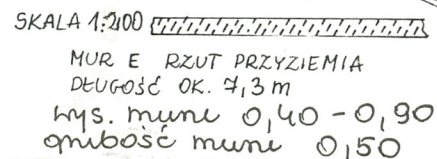 SKALA 1:200
MUR E RZUT PRZYZIEMIA
DŁUGOŚĆ OK. 7,3 m
wys. muru 0,40 - 0,90
grubość muru 0,50